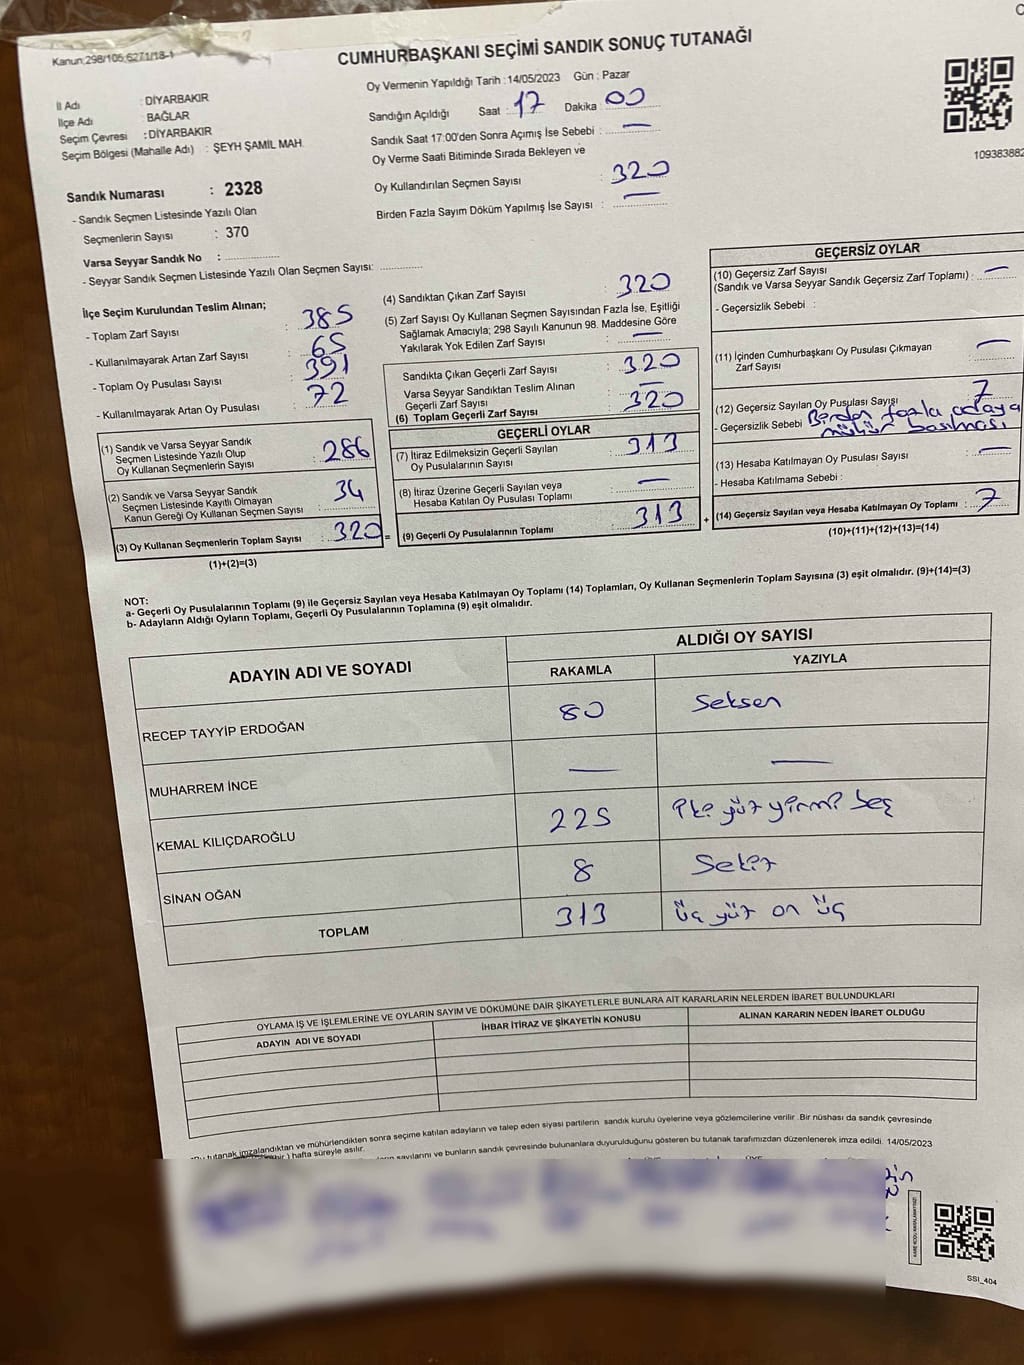 Kanun;298/105;6271/18-1
CUMHURBAŞKANI SEÇİMİ SANDIK SONUÇ TUTANAĞI
Oy Vermenin Yapıldığı Tarih : 14/05/2023 Gün : Pazar
İl Adı : DİYARBAKIR
İlçe Adı : BAĞLAR
Seçim Çevresi : DİYARBAKIR
Seçim Bölgesi (Mahalle Adı) : ŞEYH ŞAMİL MAH.
Sandığın Açıldığı Saat : 17 Dakika : 00
Sandık Saat 17:00'den Sonra Açımış İse Sebebi : —
Oy Verme Saati Bitiminde Sırada Bekleyen ve
Oy Kullandırılan Seçmen Sayısı : 320
Birden Fazla Sayım Döküm Yapılmış İse Sayısı : —
109383882
Sandık Numarası : 2328
- Sandık Seçmen Listesinde Yazılı Olan
Seçmenlerin Sayısı : 370
Varsa Seyyar Sandık No :
- Seyyar Sandık Seçmen Listesinde Yazılı Olan Seçmen Sayısı:
İlçe Seçim Kurulundan Teslim Alınan;
- Toplam Zarf Sayısı : 385
- Kullanılmayarak Artan Zarf Sayısı : 65
- Toplam Oy Pusulası Sayısı : 391
- Kullanılmayarak Artan Oy Pusulası : 72
(1) Sandık ve Varsa Seyyar Sandık
Seçmen Listesinde Yazılı Olup
Oy Kullanan Seçmenlerin Sayısı : 286
(2) Sandık ve Varsa Seyyar Sandık
Seçmen Listesinde Kayıtlı Olmayan
Kanun Gereği Oy Kullanan Seçmen Sayısı : 34
(3) Oy Kullanan Seçmenlerin Toplam Sayısı : 320 =
(1)+(2)=(3)
(4) Sandıktan Çıkan Zarf Sayısı : 320
(5) Zarf Sayısı Oy Kullanan Seçmen Sayısından Fazla İse, Eşitliği
Sağlamak Amacıyla; 298 Sayılı Kanunun 98. Maddesine Göre
Yakılarak Yok Edilen Zarf Sayısı : —
Sandıkta Çıkan Geçerli Zarf Sayısı : 320
Varsa Seyyar Sandıktan Teslim Alınan
Geçerli Zarf Sayısı : —
(6) Toplam Geçerli Zarf Sayısı : 320
GEÇERLİ OYLAR
(7) İtiraz Edilmeksizin Geçerli Sayılan
Oy Pusulalarının Sayısı : 313
(8) İtiraz Üzerine Geçerli Sayılan veya
Hesaba Katılan Oy Pusulası Toplamı : —
(9) Geçerli Oy Pusulalarının Toplamı : 313 +
GEÇERSİZ OYLAR
(10) Geçersiz Zarf Sayısı
(Sandık ve Varsa Seyyar Sandık Geçersiz Zarf Toplamı) : —
- Geçersizlik Sebebi :
(11) İçinden Cumhurbaşkanı Oy Pusulası Çıkmayan
Zarf Sayısı : —
(12) Geçersiz Sayılan Oy Pusulası Sayısı : 7
- Geçersizlik Sebebi Birden fazla adaya
mühür basılması
(13) Hesaba Katılmayan Oy Pusulası Sayısı : —
- Hesaba Katılmama Sebebi :
(14) Geçersiz Sayılan veya Hesaba Katılmayan Oy Toplamı : 7
(10)+(11)+(12)+(13)=(14)
NOT:
a- Geçerli Oy Pusulalarının Toplamı (9) ile Geçersiz Sayılan veya Hesaba Katılmayan Oy Toplamı (14) Toplamları, Oy Kullanan Seçmenlerin Toplam Sayısına (3) eşit olmalıdır. (9)+(14)=(3)
b- Adayların Aldığı Oyların Toplamı, Geçerli Oy Pusulalarının Toplamına (9) eşit olmalıdır.
ADAYIN ADI VE SOYADI
ALDIĞI OY SAYISI
RAKAMLA YAZIYLA
RECEP TAYYİP ERDOĞAN 80 Seksen
MUHARREM İNCE — —
KEMAL KILIÇDAROĞLU 225 iki yüz yirmi beş
SİNAN OĞAN 8 Sekiz
TOPLAM 313 Üç yüz on üç
OYLAMA İŞ VE İŞLEMLERİNE VE OYLARIN SAYIM VE DÖKÜMÜNE DAİR ŞİKAYETLERLE BUNLARA AİT KARARLARIN NELERDEN İBARET BULUNDUKLARI
ADAYIN ADI VE SOYADI İHBAR İTİRAZ VE ŞİKAYETİN KONUSU ALINAN KARARIN NEDEN İBARET OLDUĞU
tutanak imzalandıktan ve mühürlendikten sonra seçime katılan adayların ve talep eden siyasi partilerin sandık kurulu üyelerine veya gözlemcilerine verilir .Bir nüshası da sandık çevresinde
) hafta süreyle asılır.
sayılarını ve bunların sandık çevresinde bulunanlara duyurulduğunu gösteren bu tutanak tarafımızdan düzenlenerek imza edildi. 14/05/2023
SSI_404